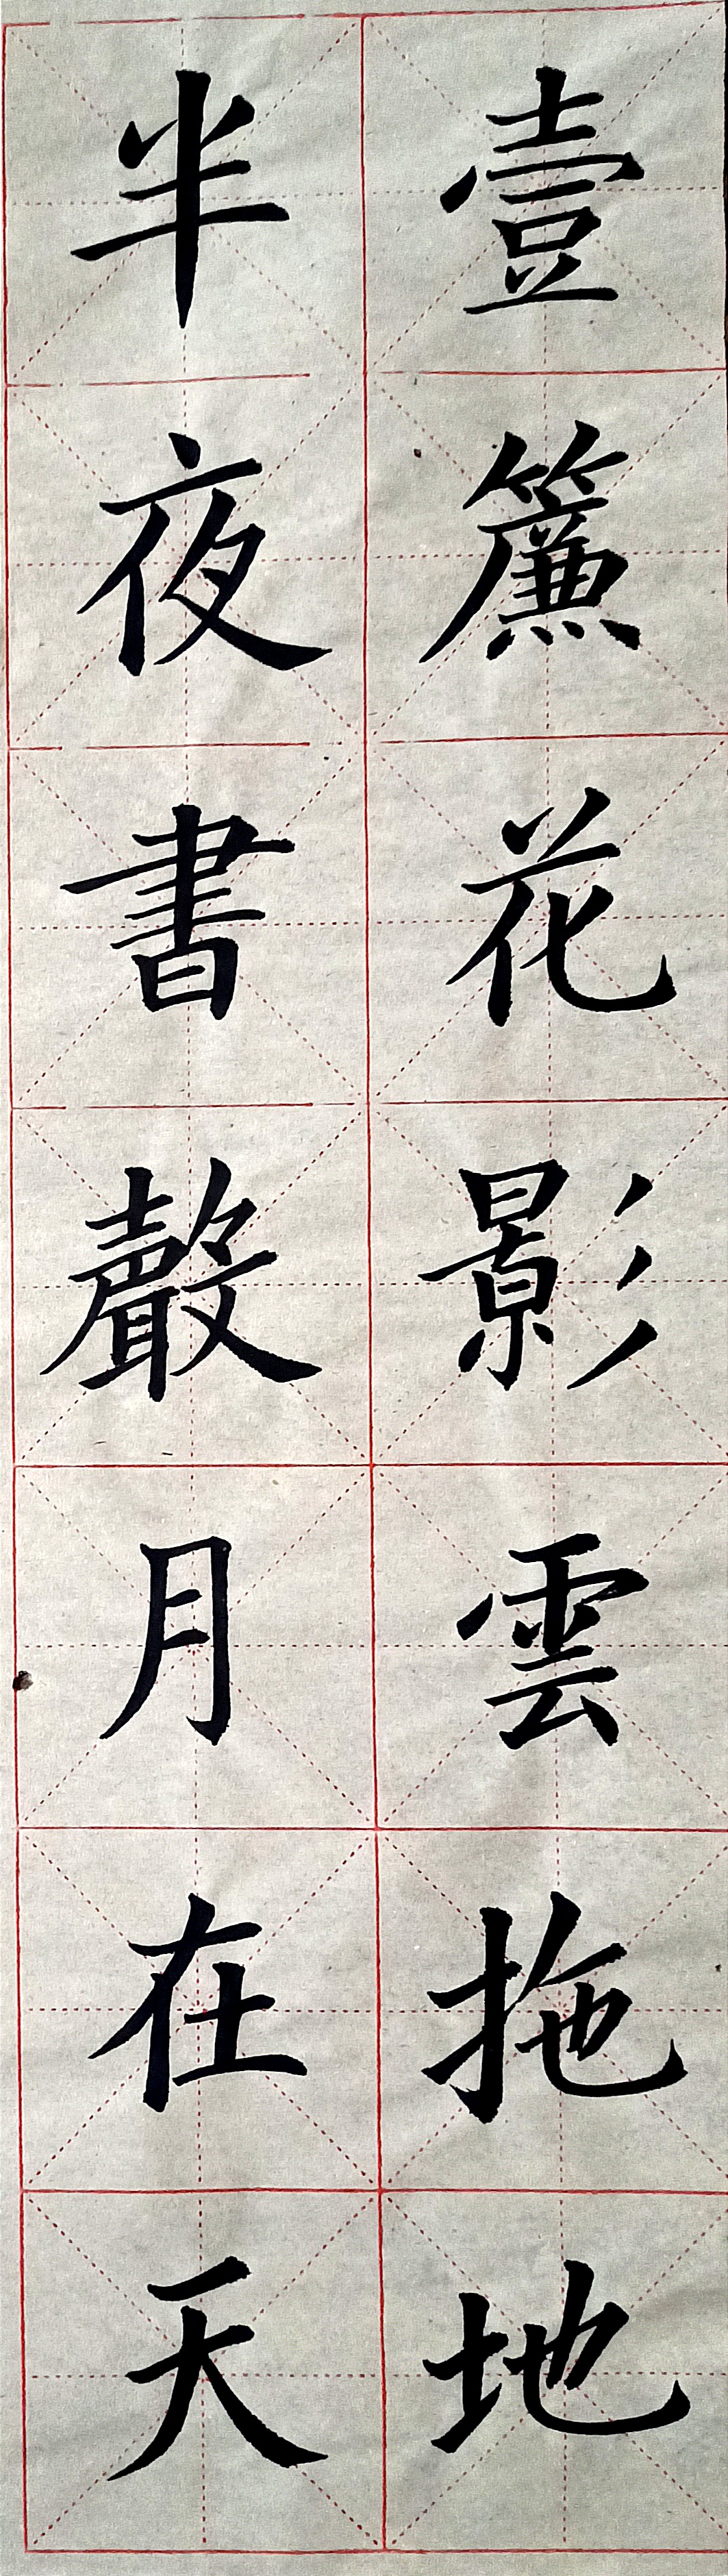 壹簾花影雲拖地
半夜書聲月在天